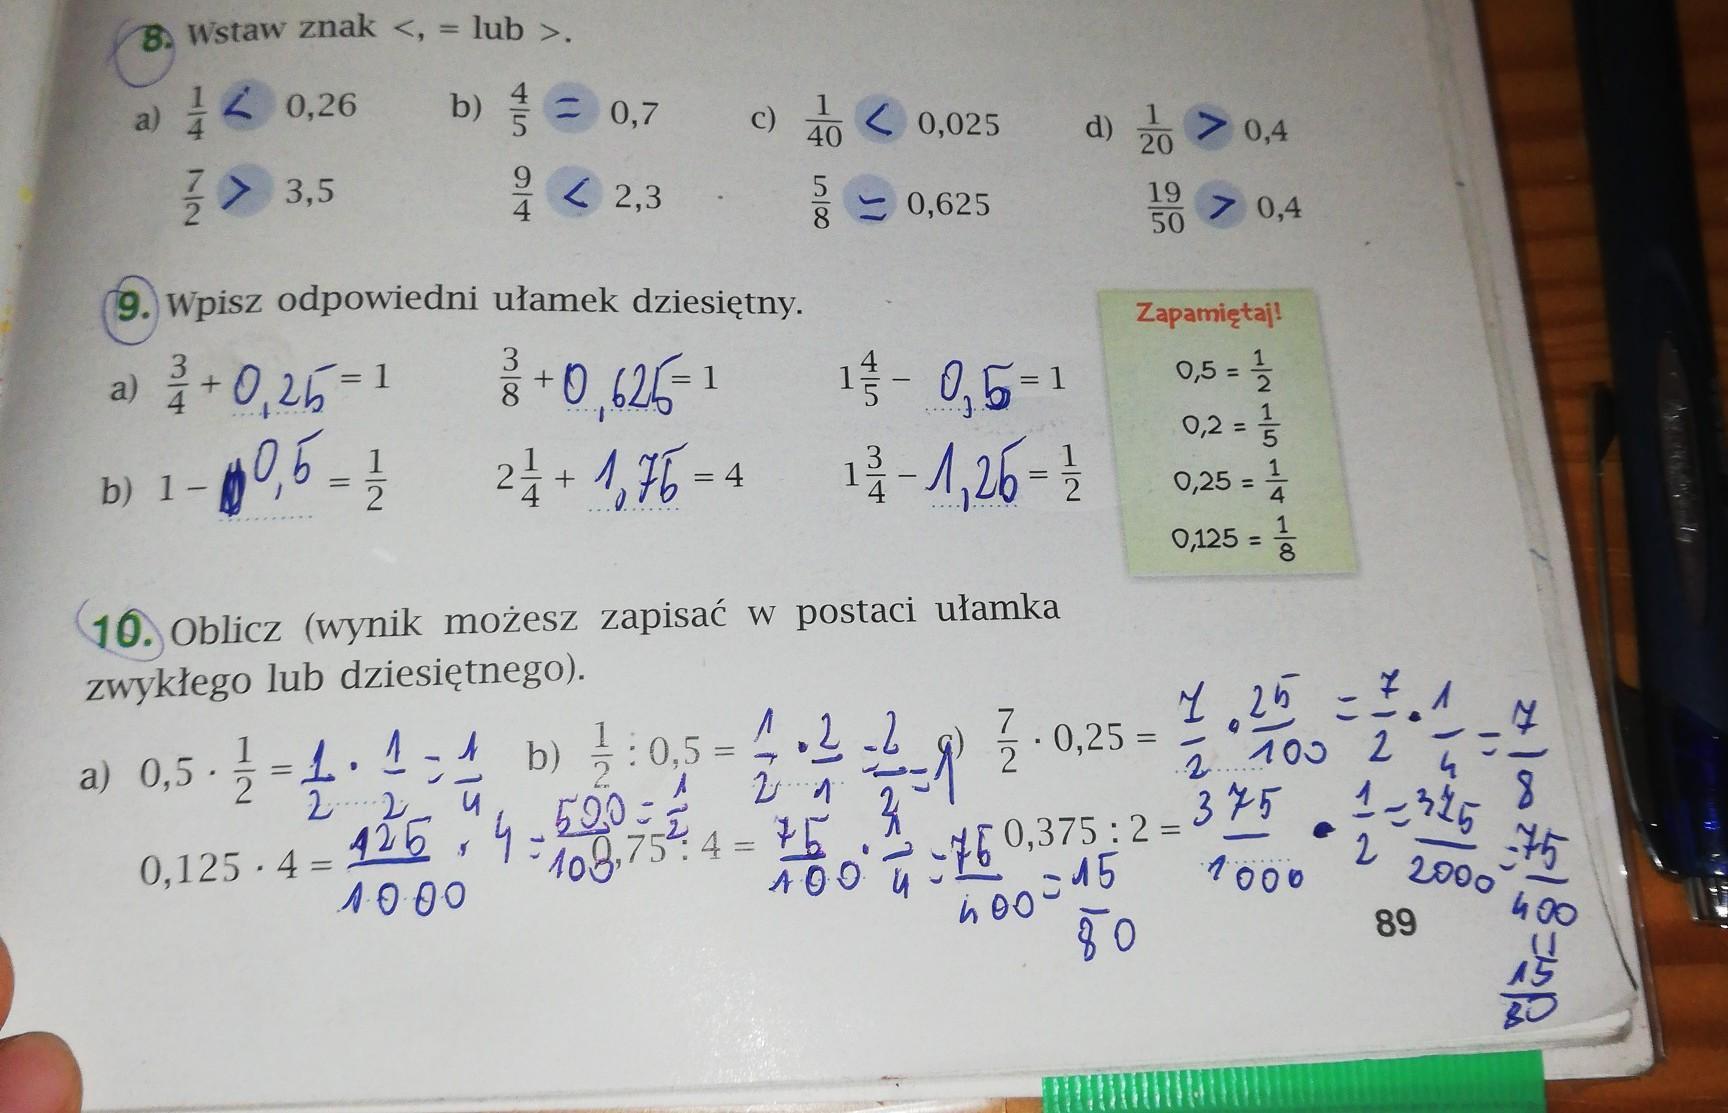 8. Wstaw znak <, = lub >.
a) 1/4 < 0,26 b) 4/5 = 0,7 c) 1/40 < 0,025 d) 1/20 > 0,4
7/2 > 3,5 9/4 < 2,3 5/8 = 0,625 19/50 > 0,4
9. Wpisz odpowiedni ułamek dziesiętny.
a) 3/4 + 0,25 = 1 3/8 + 0,625 = 1 1 4/5 - 0,5 = 1
b) 1 - 0,5 = 1/2 2 1/4 + 1,75 = 4 1 3/4 - 1,25 = 1/2
Zapamiętaj!
0,5 = 1/2
0,2 = 1/5
0,25 = 1/4
0,125 = 1/8
10. Oblicz (wynik możesz zapisać w postaci ułamka
zwykłego lub dziesiętnego).
a) 0,5 · 1/2 = 1/2 · 1/2 = 1/4 b) 1/2 : 0,5 = 1/2 · 2/1 = 2/2 = 1 c) 7/2 · 0,25 = 7/2 · 25/100 = 7/2 · 1/4 = 7/8
0,125 · 4 = 125/1000 · 4 = 500/1000 = 1/2 0,75 : 4 = 75/100 · 1/4 = 75/400 = 15/80 0,375 : 2 = 375/1000 · 1/2 = 375/2000 = 75/400 = 15/80
89